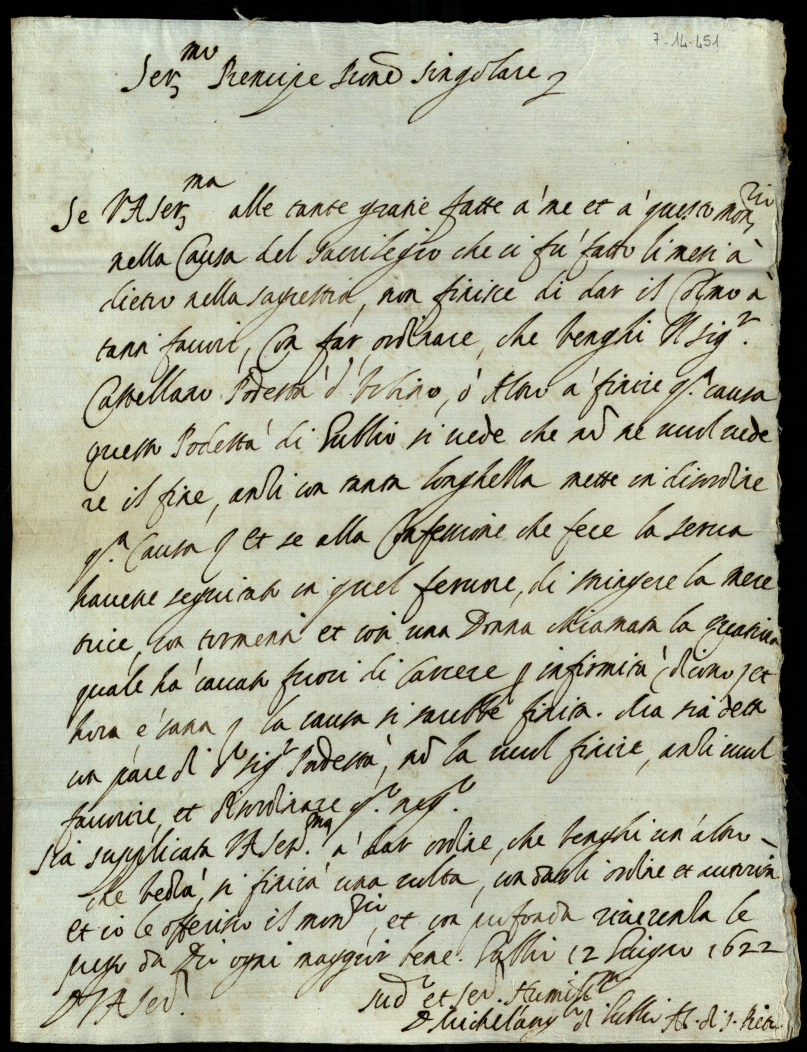 7-14-451
Ser.mo Prencipe Prone singolare
Se VA Ser.ma alle tante gratie fatte a' me et a' questo mon.rio
nella Causa del sacrilegio che ci fu' fatto li mesi à
dietro nella sagrestia, non finisce di dar il Colmo a
tanti favori, Con far, ordinare, che venghi Il sig.r
Castellano Podestà d' Urbino, ò Altro a' finire q.a causa
questo Podestà di Gubbio si vede che nō ne vuol vede
re il fine, anzi con tanta longhezza mette in disordine
q.a Causa et se alla Confessione che fece la serva
havesse seguitato in quel fervore, di stringere la mere
trice, con tormenti et così una Donna chiamata la
quale ha' cavata fuori di Carcere p infirmità (dicono) et
hora e' sana p la causa si sarebbe finita. Ma sia detto
con pace di d.o sig.r Podestà, nō la vuol finire, anzi vuol
favorire, et disordinare q.o neg.o
Sia supplicata VA Ser.ma a' dar ordine, che venghi un'altro
che vedrà, si finirà una volta, con darli ordine et autorità
et io le offerisco il mon.rio, et con profonda riverenza le
prego da Dio ogni maggior bene. Gubbio 12 Giugno 1622
D VA Ser.
Sud.o et Ser. Humiliss.o
D Michelang.o di Gubbio Ab. di S. Pietro